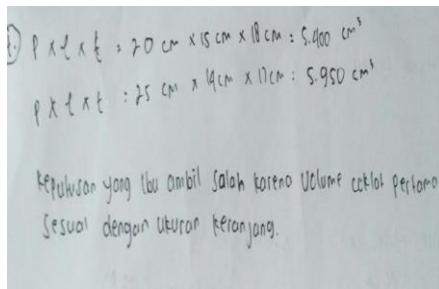 P x l x t = 20 cm x 15 cm x 18 cm = 5.400 cm³
P x l x t = 25 cm x 14 cm x 17 cm = 5.950 cm³
Keputusan yang Ibu ambil salah kareno volume coklat pertama
Sesuai dengan ukuran keranjang.